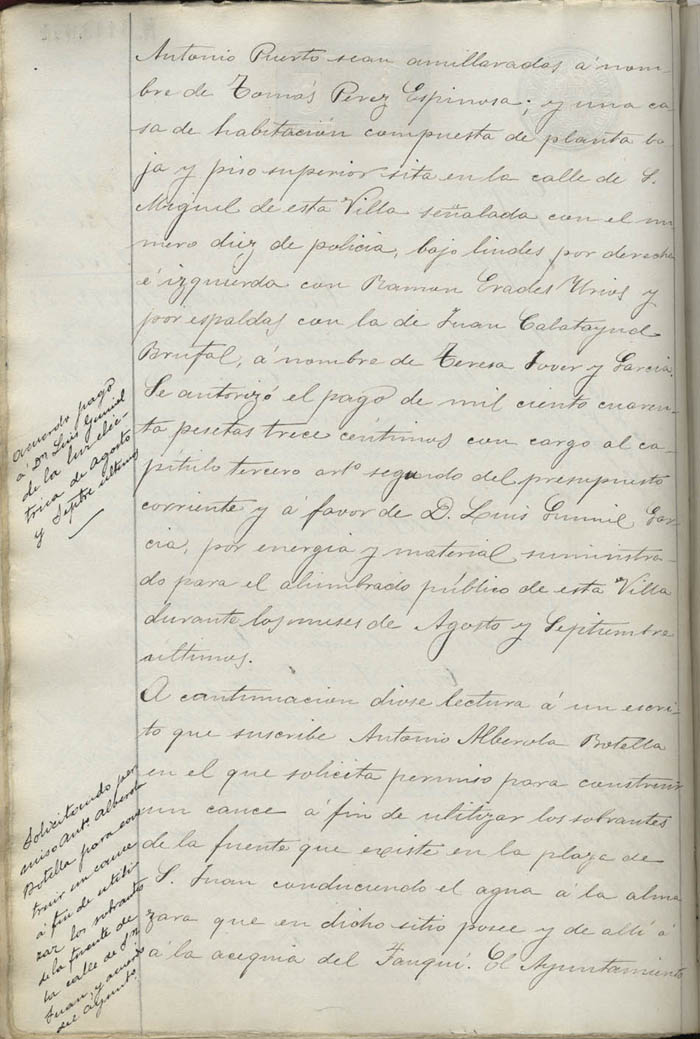 Antonio Puerto sean amillaradas á nom-
bre de Tomás Perez Espinosa; y una ca
sa de habitación compuesta de planta ba
ja y piso superior sita en la calle de S.
Miguel de esta Villa señalada con el nu
mero diez de policia, bajo lindes por derecha
é izquierda con Ramon Erades Urios y
por espaldas con la de Juan Calatayud
Brufal, á nombre de Teresa Jover y Garcia.
Se autorizó el pago de mil ciento cuaren-
ta pesetas trece céntimos con cargo al ca-
pítulo tercero artº segundo del presupuesto
corriente y á favor de D. Luis Gumiel Gar-
cia, por energia y material suministra-
do para el alumbrado público de esta Villa
durante los meses de Agosto y Septiembre
ultimos.
A continuacion diose lectura á un escri-
to que suscribe Antonio Alberola Botella
en el que solicita permiso para construir
un cauce á fin de utilizar los sobrantes
de la fuente que existe en la plaza de
S. Juan conduciendo el agua á la alma
zara que en dicho sitio posee y de allí á
á la acequia del Fauquí. El Ayuntamiento
Acuerdo pago
á Dn Luis Gumiel
de la luz eléc-
trica de Agosto
y Septbre ultimos
Solicitando per
miso Antº Alberola
Botella para cons
truir un cauce
á fin de utili-
zar los sobrantes
de la fuente de
la calle de Sn
Juan, y acuerdo
del Ayuntº.